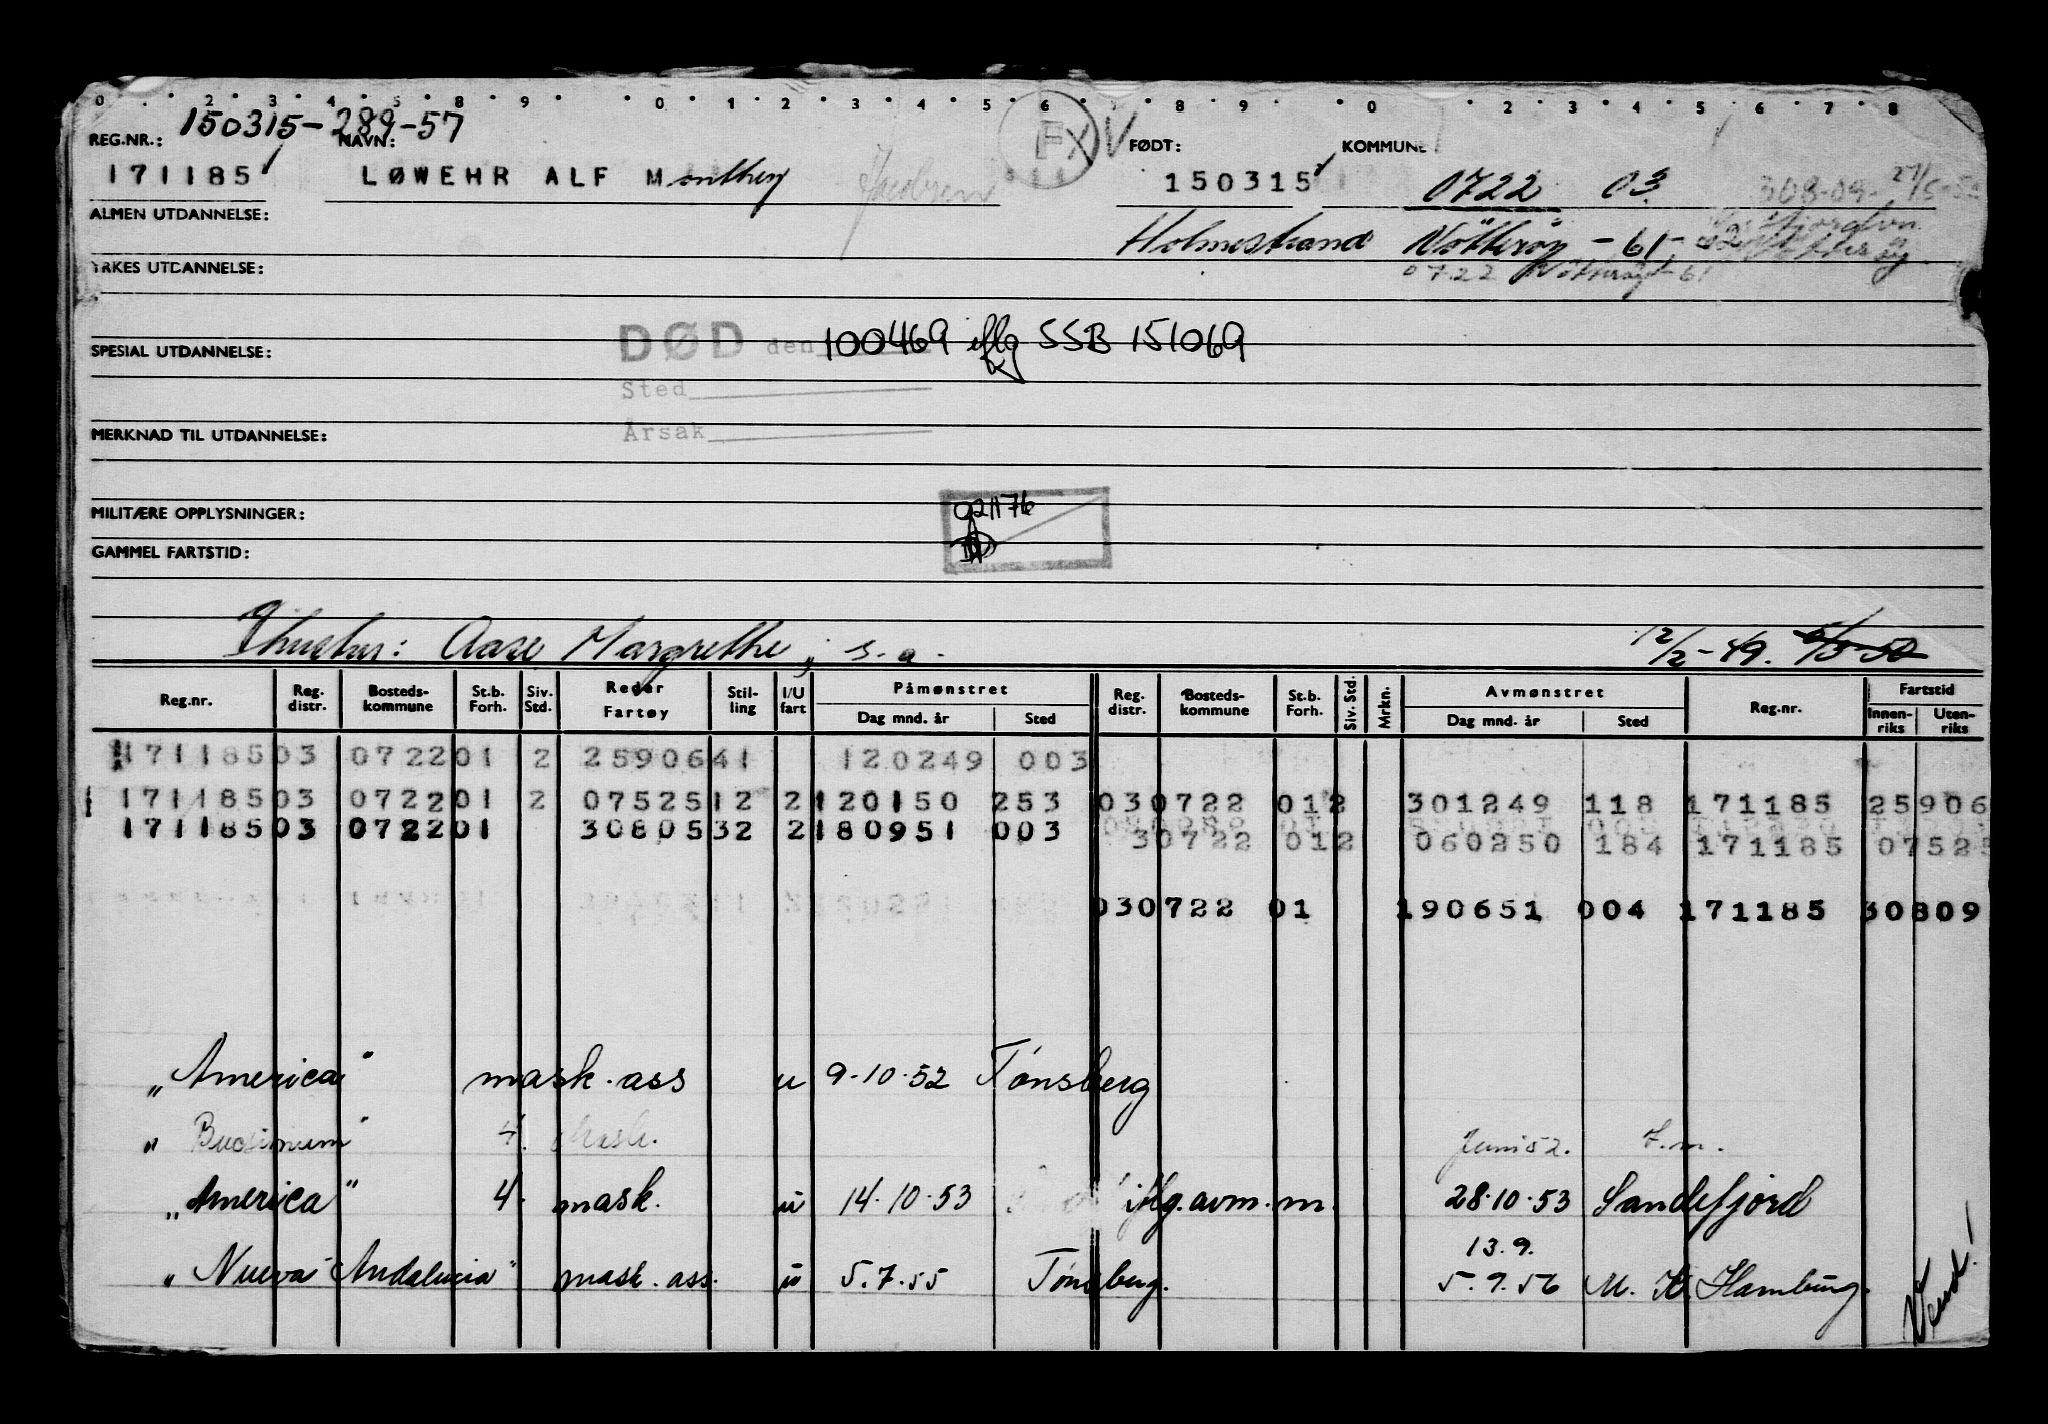 0 2 3 4 5 8 9 0 1 2 3 4 5 6 8 9 0 2 3 4 5 6 7 8
150315-289-57
REG.NR.: NAVN: FØDT: KOMMUNE
171185 LØWEHR ALF M onthey Jacobsen FX V 150315 0722 03 308-09-
ALMEN UTDANNELSE: Holmestrand Nøtterøy -61-
YRKES UTDANNELSE: 0722 Nøtterøy -61
DØD den 100469 iflg SSB 151069
SPESIAL UTDANNELSE:
Sted
Årsak
MERKNAD TIL UTDANNELSE:
021176
MILITÆRE OPPLYSNINGER:
GAMMEL FARTSTID:
hustru: Aase Margrethe, s.a. 12/2-49. 6/3-50
Reg.nr. Reg. distr. Bosteds- kommune St.b. Forh. Siv. Std. Reder Fartøy Stil- ling I/U fart Påmønstret Dag mnd. år Sted Reg. distr. Bosteds- kommune St.b. Forh. Siv. Std. Mrkn. Avmønstret Dag mnd. år Sted Reg.nr. Fartstid Innen- riks Uten- riks
171185 03 0722 01 2 25906 41 120249 003
171185 03 0722 01 2 07525 12 2 120150 253 03 0722 01 2 301249 118 171185 25906
171185 03 0722 01 30805 32 2 180951 003
30722 01 2 060250 184 171185 07525
03 0722 01 190651 004 171185 30809
"America" mask. ass u 9-10-52 Tønsberg
" 4. mask. Juni 52. f.m.
"America" 4. mask. u 14-10-53 iflg. avm. m. 28-10-53 Sandefjord
13.9.
"Nueva Andalucia" mask. ass. u 5.7.55 Tønsberg. 5.9.56 M. K. Hamburg.
Vend!